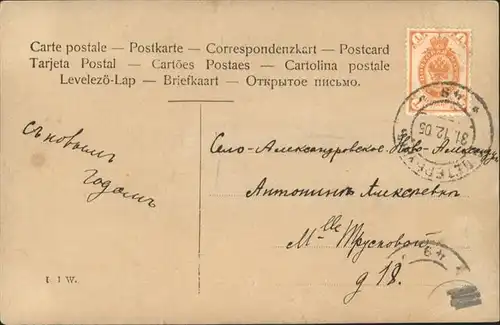 Carte postale — Postkarte — Correspondenzkart — Postcard
Tarjeta Postal — Cartões Postaes — Cartolina postale
Levelező-Lap — Briefkaart — Открытое письмо.
31.12.05
Съ новымъ
годомъ
Село-Александровское
Антонинѣ Алексѣевнѣ
Mlle Трусковой
д 18.
I. J. W.